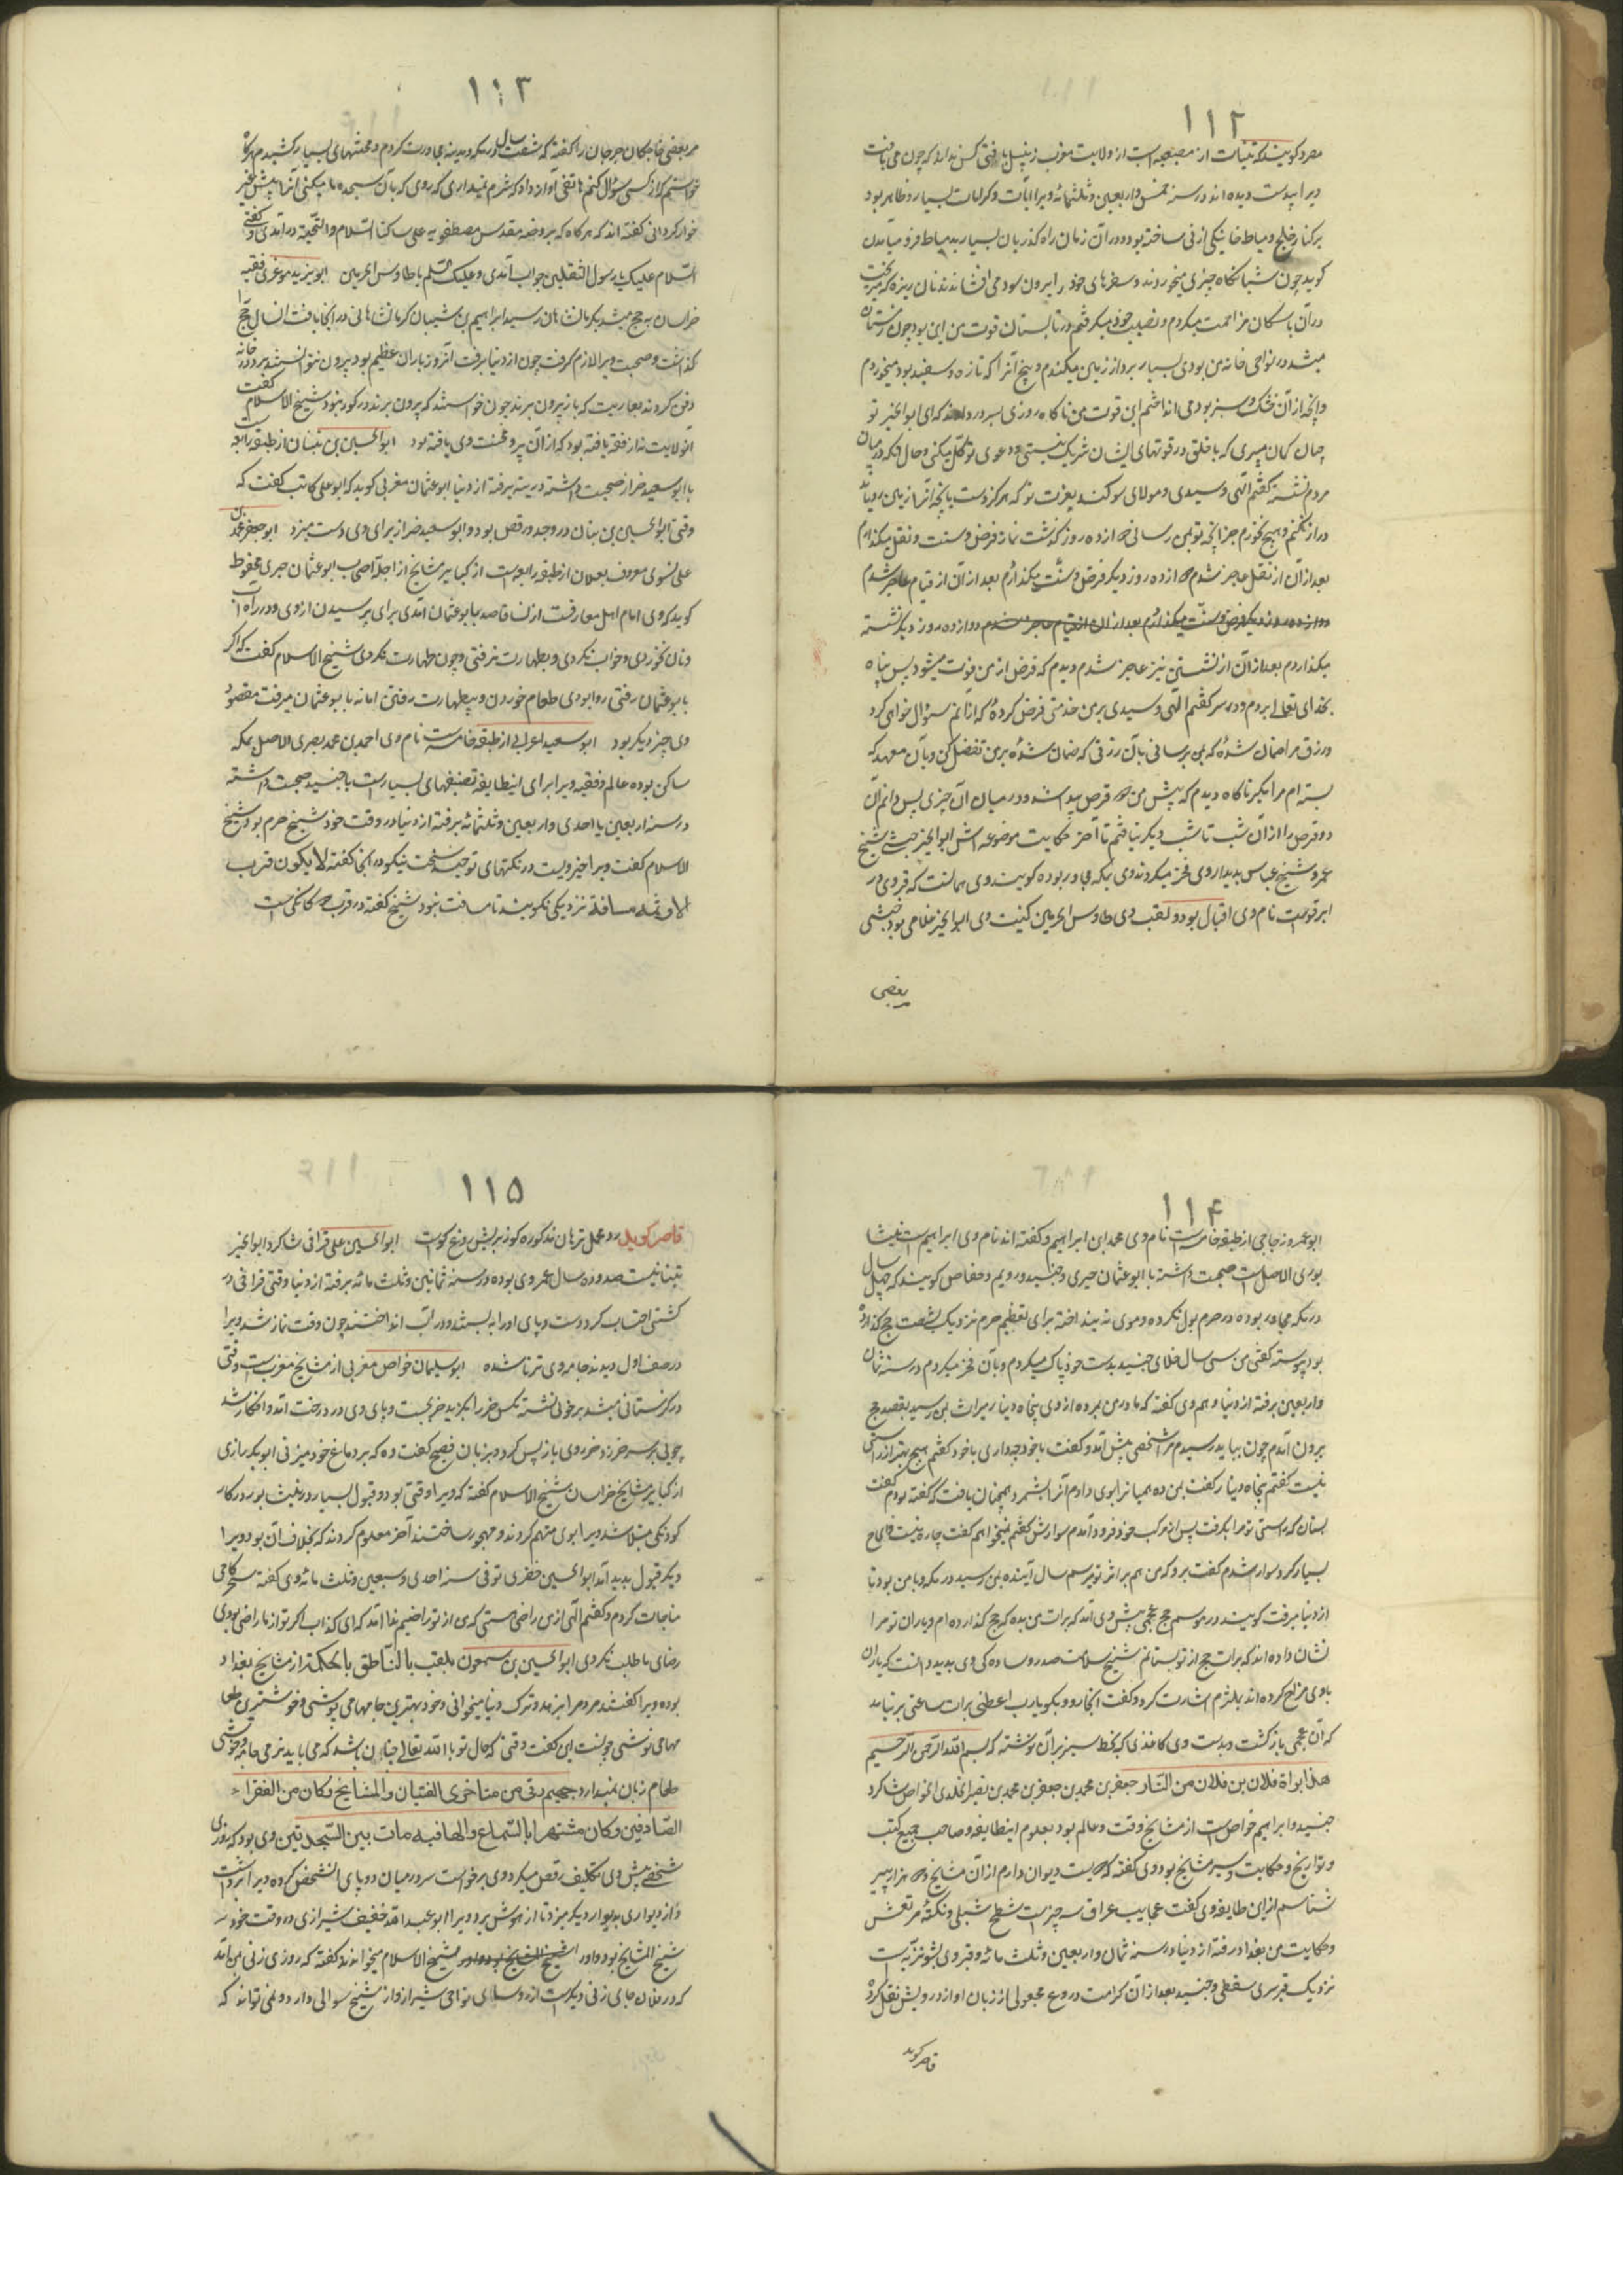 ۱۱۲
مصر و کویند که تینات از مصیصه است از ولایت مغرب زنبیل بافتی کس نداند که چون می بافت
بر کنار خلیج دمیاط خانیکی از نی ساخته بود و در آن زمان راه کذریان بسیار بدمیاط فرو میآمدن
کوید چون شبانکاه چیزی میخوردند و سفرهای خود را بیرون سود می افشاندند نان ریزه که میریخت
در آن با سکان مزاحمت میکردم و نصیب خود میکرفتم در تابستان قوت من این بود چون زمستان
میشد در نواحی خانه من بودی بسیار بردا از زمین میکندم و بیخ آنرا که تازه و سفید بود میخوردم
و آنچه از آن خشک و سبز بود می انداختم این قوت من ناکاه روزی بسرم در دادند که ای ابوالخیر تو
چنان کمان میبری که با خلق در قوتهای ایشان شریک نیستی و دعوی توکل میکنی و حال آنکه در میان
مردم نشسته کفتم الهی و سیدی و مولای سوکند بعزت تو که هرکز دست بآنچه از زمین رویاند
دراز نکنم و هیچ نخورم جز آنچه تو بمن رسانی دوازده روز کذشت نماز فرض و سنت و نفل میکذاردم
بعد از آن از نفل عاجز شدم دوازده روز دیکر فرض و سنت میکذاردم بعد از آن از قیام عاجز شدم
دوازده روز دیکر فرض و سنت میکذاردم بعد از آن از قیام عاجز شدم دوازده روز دیکر نشسته
میکذاردم بعد از آن از نشستن نیز عاجز شدم دیدم که فرض از من فوت میشود پس پناه
بخدای تعالی بردم و در سر کفتم الهی و سیدی بر من خدمتی فرض کردهٔ که از آنم سؤال خواهی کرد
و رزق مرا ضمان شدهٔ که بمن برسانی بآن رزقی که ضمان شدهٔ بر من تفضل کن و بآن معهد که
بسته ام مرا مکیر ناکاه دیدم که پیش من دو قرص پیدا شد و در میان آن چیزی پس دائم آن
دو قرص را از آن شب تا شب دیکر نیافتم تا آخر حکایت موضوعه اش ابوالخیر حبشی شیخ
عمرو شیخ عباس بدیدار وی فخر میکردند وی بمکه مجاور بوده کویند وی همانست که قبر وی در
ابرقوست نام وی اقبال بود و لقب وی طاوس الحرمین کنیت وی ابوالخیر غلامی بود حبشی
بعضی
۱۱۳
مر بعضی خواجکان جرجان را کفته که شصت سال در مکه و مدینه مجاورت کردم و محنتهای بسیار کشیدم هرکاه
خواستم که از کسی سؤال کنم هاتفی آواز داد که شرم نمیداری که روی که بآن سجده ما میکنی آنرا پیش غیر
خوار کردانی کفته اند که هرکاه که بروضه مقدس مصطفویه علی ساکنها السلام و التحیة در آمدی و کفتی
السلام علیک یا رسول الثقلین جواب آمدی و علیک السلم یا طاوس الحرمین ابو یزید مرغزی فقیه
خراسان به حج میشد بکرمانشاهان رسید ابراهیم بن شیبان کرمانشاهانی در آنجا یافت انسال حج را
کذاشت و صحبت ویرا لازم کرفت چون از دنیا برفت آنروز باران عظیم بود بیرون نتوانستند برد در خانه
دفن کردند بعاریت که باز بیرون برند چون خواستند که بیرون برند در کور نبود شیخ الاسلام کفت
آنولایت نه از فقه یافته بود که از آن پیر و محنت وی یافته بود ابوالحسین بن بنان از طبقه رابعه
با ابو سعید خراز صحبت داشته در تیه برفته از دنیا ابو عثمان مغربی کوید که ابو علی کاتب کفت که
وقتی ابوالحسین بن بنان در وجد و رقص بود و ابو سعید خراز برای وی دست میزد ابو جعفر محمد بن
علی نسوی معروف بعلیان از طبقه رابعه است از کبایر مشایخ از اجلهٔ اصحاب ابو عثمان حیری محفوظ
کوید که وی امام اهل معارفت از نسا قاصد بابو عثمان آمدی برای پرسیدن از وی و در راه آب
و نان نخوردی و خواب نکردی و بطهارت نرفتی و چون طهارت نکردی شیخ الاسلام کفت که اکر
با بو عثمان رفتی روا بودی طعام خوردن و بیطهارت رفتن اما نه با بوعثمان میرفت مقصود
وی چیز دیکر بود ابو سعید اعرابی از طبقه خامسه است نام وی احمد بن محمد بصری الاصل بمکه
ساکن بوده عالم و فقیه ویرا برای اینطایفه تصنیفهای بسیار است با جنید صحبت داشته
در سنه اربعین یا احدی و اربعین و ثلثمائه برفته از دنیا در وقت خود شیخ حرم بود شیخ
الاسلام کفت ویرا جزویست در نکتهای توحید سخت نیکو در آنجا کفته لا یکون قرب
الا و ثمه مسافة نزدیکی نکویند تا مسافت نبود شیخ کفته در قرب دو کانکی است
۱۱۴
ابو عمرو زجاجی از طبقه خامسه است نام وی محمد ابن ابراهیم و کفته اند نام وی ابراهیم است نیشا
بوری الاصل است صحبت داشته با ابو عثمان حیری و جنید و رویم و خواص کویند که چهل سال
در مکه مجاور بوده در حرم بول نکرده و موی نه بینداخته برای تعظیم حرم نزدیک بشصت حج کذارده
بود پیوسته کفتی من سی سال خلای جنید بدست خود پاک میکردم و بآن فخر میکردم در سنه ثمان
و اربعین برفته از دنیا و هم وی کفته که مادر من بمرده از وی پنجاه دینار میراث بمن رسید بقصد حج
برون آمدم چون ببابل رسیدم مرا شخصی پیش آمد و کفت با خود چه داری با خود کفتم هیچ بهتر از راستی
نیست کفتم پنجاه دینار کفت بمن ده همیانرا بوی دادم آنرا بشمرد همچنان یافت که کفته بودم کفت
بستان که راستی تو مرا بکرفت پس از مرکب خود فرود آمدم سوارش کفتم نمیخواهم کفت چاره نیست الحاح
بسیار کرد سوار شدم کفت برو که من هم بر اثر تو میرسم سال آینده بمن رسید در مکه و با من بود تا
از دنیا برفت کویند در موسم حج عجمی پیش وی آمد که برات من بده که حج کذارده ام و یاران تو مرا
نشان داده اند که برات حج از تو بستانم شیخ سلامت صدر و ساده کی وی بدید دانست که یاران
با وی مزاح کرده اند بملتزم اشارت کرد و کفت آنجا رو و بکو یا رب اعطنی برات ساعتی بر نیامد
که آن عجمی باز کشت و بدست وی کاغذی که بخط سبز بر آن نوشته که بسم الله الرحمن الرحیم
هذا براة فلان بن فلان من النار جعفر بن محمد بن جعفر بن محمد بن نصیر الخلدی الخواص شاکرد
جنید و ابراهیم خواص است از مشایخ وقت و عالم بود بعلوم اینطایفه و صاحب جمیع کتب
و تواریخ و حکایت و سیر مشایخ بود وی کفته که دویست دیوان دارم از آن مشایخ و دو هزار پیر
شناسم از این طایفه وی کفت عجایب عراق سه چیز است شطح شبلی و نکتهٔ مرتعش
و حکایت من بغداد رفته از دنیا در سنه ثمان و اربعین و ثلث مائه و قبر وی بشونیزیه است
نزدیک قبر سری سقطی و جنید بعد از آن کرامت دروغ مجعولی از زبان او از درویش نقل کرده
قاصر کوید
۱۱۵
قاصر کوید ابوالحسین علی قرافی شاکرد ابوالخیر
تیناتیست صد و ده سال عمر وی بوده در سنه ثمانین و ثلث مائه برفته از دنیا وقتی قرافی در
کشتی احتساب کرد دست و پای او را به بستند و در آب انداختند چون وقت نماز شد ویرا
در صف اول دیدند جامه وی تر ناشده ابو سلیمان خواص مغربی از مشایخ مغرب است وقتی
در کزستانی میشد بر خری نشسته مکس خر را بکزید خر بجست و پای وی در درخت آمد و افکار شد
چوبی بر سر خر زد خر روی باز پس کرد و بزبان فصیح کفت ده که بر دماغ خود میزنی ابوبکر رازی
از کبایر مشایخ خراسان شیخ الاسلام کفته که ویرا وقتی بود و قبول بسیار در نیشابور در کار
کودکی مبتلا شد ویرا بوی متهم کردند و مهجور ساختند آخر معلوم کردند که بخلاف آن بود ویرا
دیکر قبول بدید آمد ابوالحسین خضری توفی سنه احدی و سبعین و ثلث مائه وی کفته سحرکاهی
مناجات کردم و کفتم الهی از من راضی هستی که من از تو راضیم ندا آمد که ای کذاب اکر تو از ما راضی بودی
رضای ما طلب نکردی ابوالحسین بن سمعون ملقب بالناطق بالحکمة از مشایخ بغداد
بوده ویرا کفتند مردم را بزهد و ترک دنیا میخوانی و خود بهترین جامهها می پوشی و خوشترین طعا
مها می نوشی چونست این کفت وقتی که حال تو با الله تعالی چنان باشد که می باید نرمی جامه و خوشی
طعام زیان نمیدارد جهیم رقی من متاخری الفتیان و المشایخ و کان من الفقراء
الصادقین و کان مشتهرا بالسماع والها فیه مات بین السجدتین وی بود که روزی
شخصی پیش وی بتکلیف رقص میکرد وی برخواست سر در میان دو پای آنشخص کرده ویرا برداشت
و از دیواری بدیوار دیکر میزد تا از هوش برد ویرا ابو عبد الله خفیف شیرازی در وقت خود
شیخ المشایخ بود و او را شیخ الاسلام میخوانند کفته که روزی زنی بر من آمد
که در فلان جای زنی دیکر است از روسای نواحی شیراز و از شیخ سوالی دارد و نمی تواند که